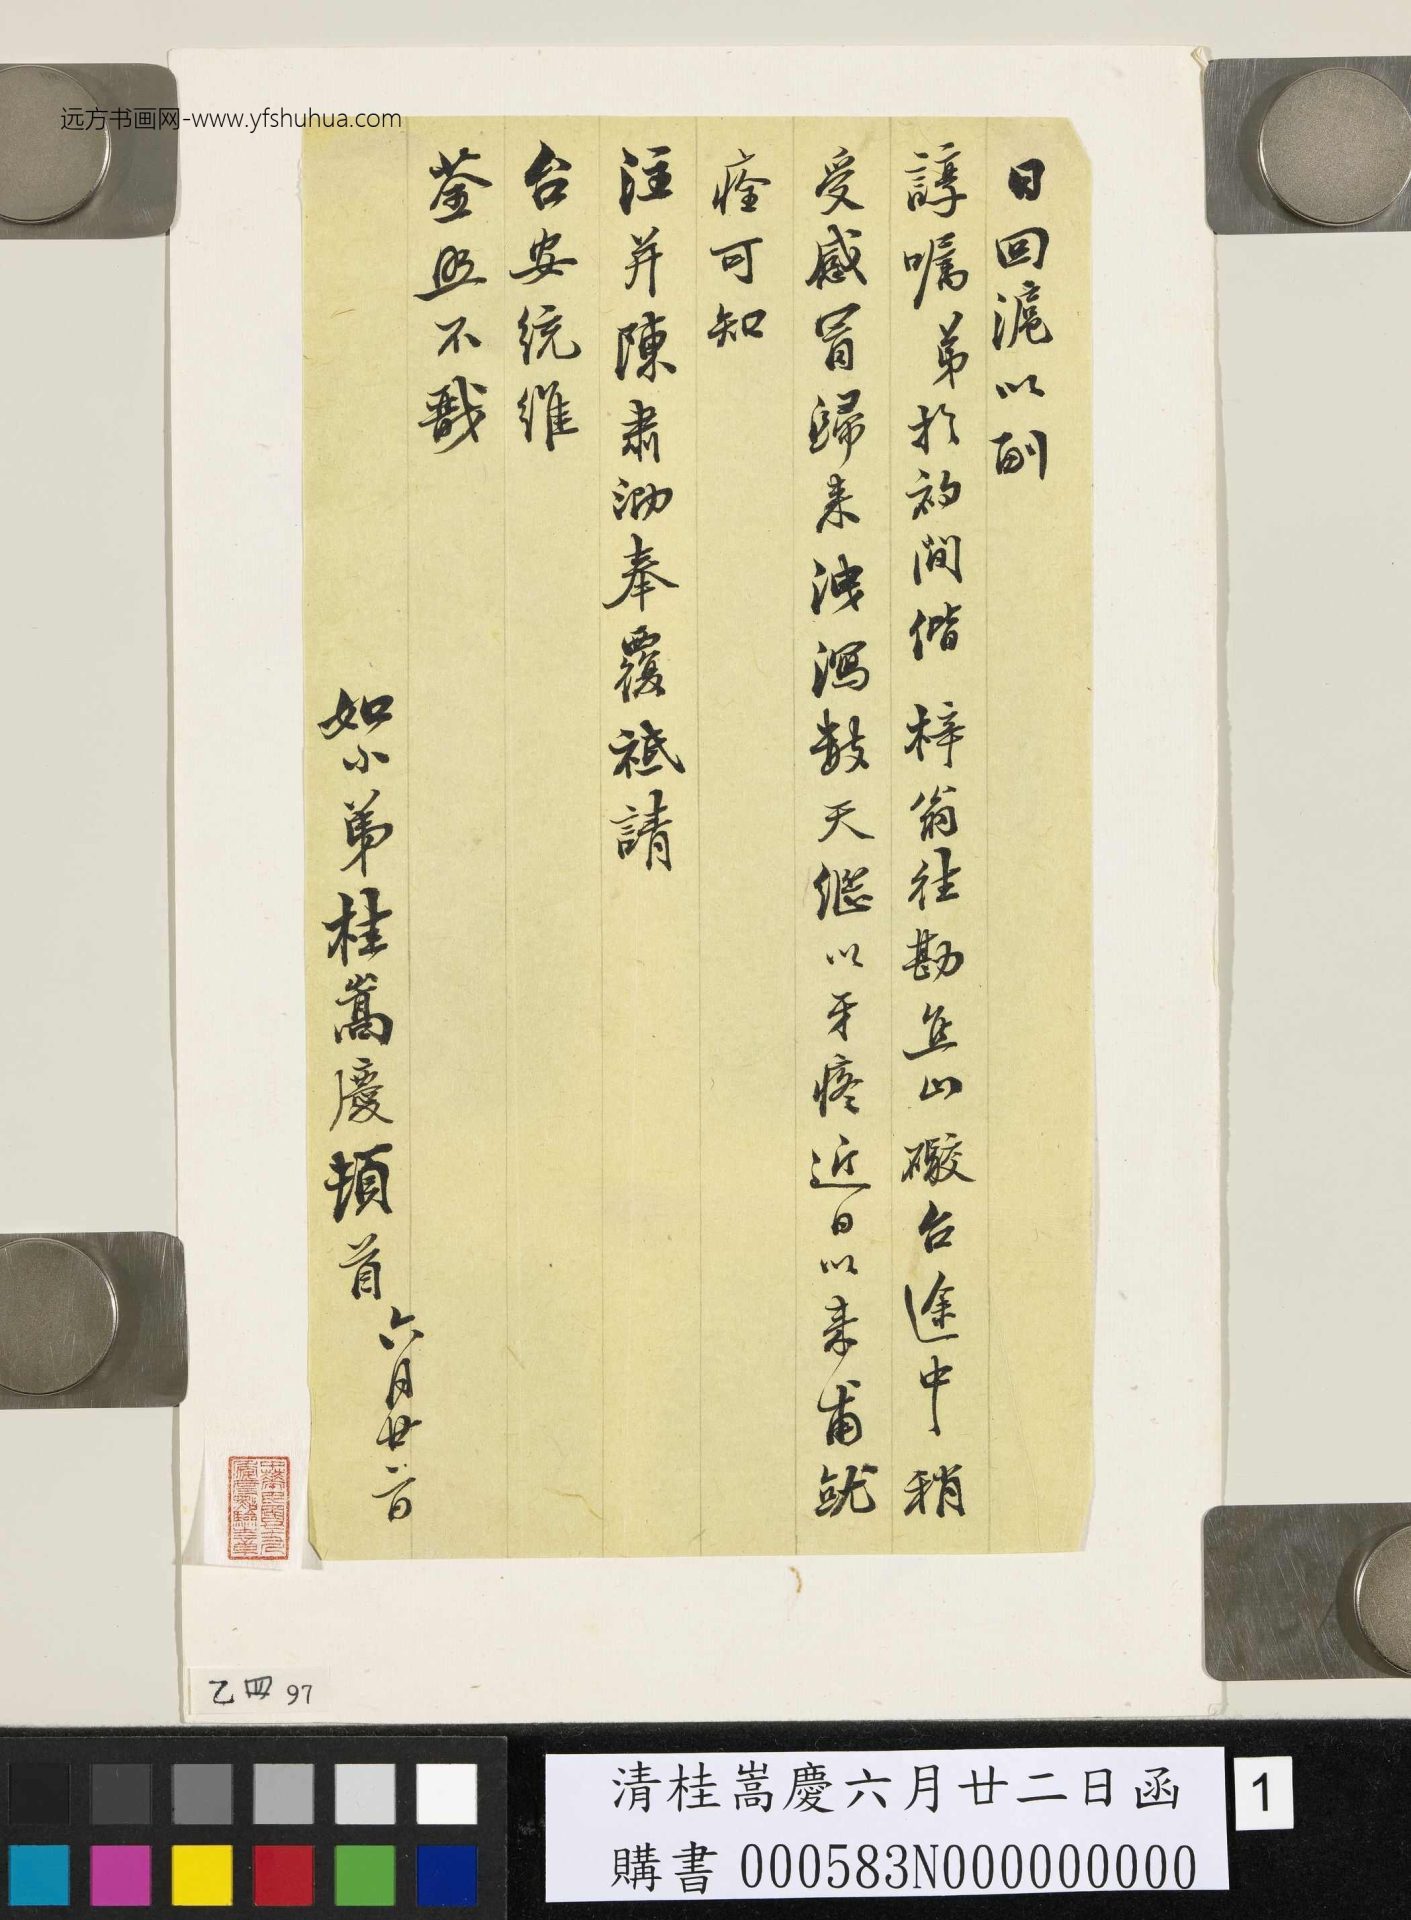 远方书画网-www.yfshuhua.com
日回滬以副
諄囑弟於初間偕梓翁往勘焦山礮台途中稍
受感冒歸来洩瀉數天繼以牙疼近日以来甫就
痊可知
注并陳肅泐奉覆祗請
台安統維
荃照不戬
如小弟桂嵩慶頓首
六月廿二日
乙四97
清桂嵩慶六月廿二日函
購書000583N000000000
1